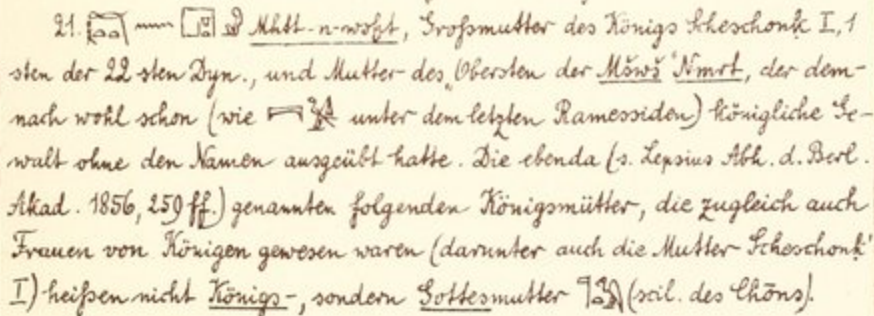 21. Mḥtt-n-wsḫt, Großmutter des Königs Scheschonk I, 1
sten der 22 sten Dyn., und Mutter des „Obersten der Mšwš“ Nmrt, der dem-
nach wohl schon (wie unter dem letzten Ramessiden) königliche Ge-
walt ohne den Namen ausgeübt hatte. Die ebenda (s. Lepsius Abh. d. Berl.
Akad. 1856, 259 ff.) genannten folgenden Königsmütter, die zugleich auch
Frauen von Königen gewesen waren (darunter auch die Mutter Scheschonk'
I) heißen nicht Königs-, sondern Gottesmutter (scil. des Chōns).